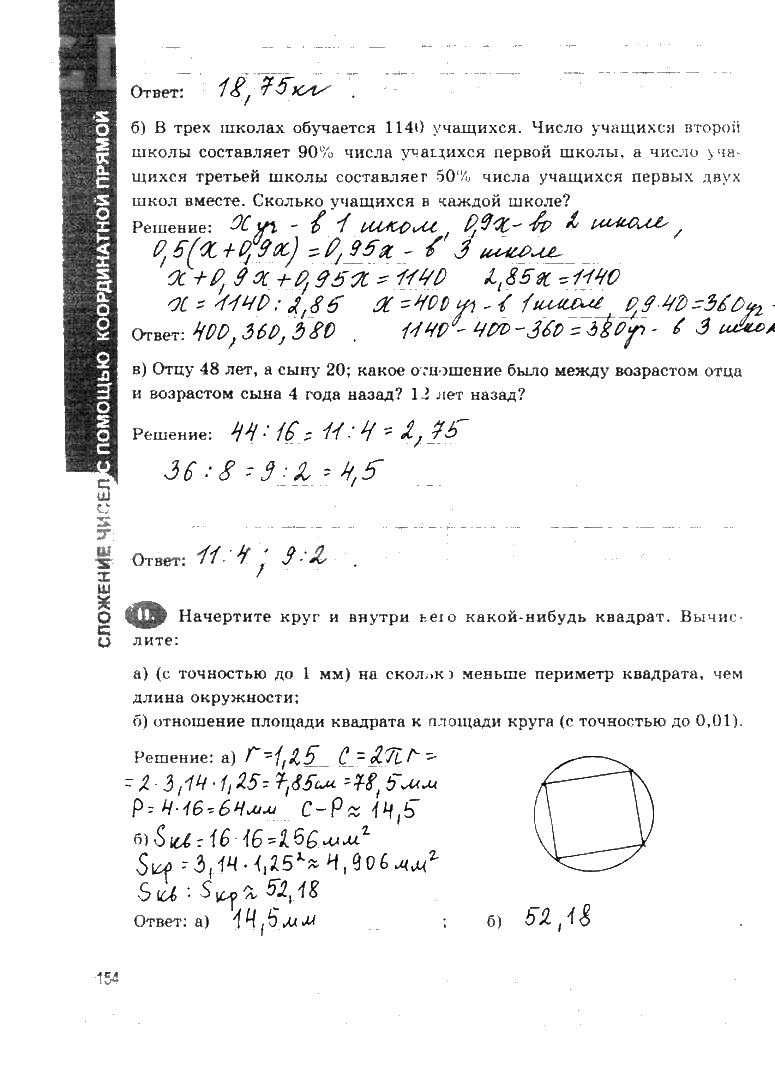 Ответ: 18,75кг .
б) В трех школах обучается 1140 учащихся. Число учащихся второй
школы составляет 90% числа учащихся первой школы, а число уча-
щихся третьей школы составляет 50% числа учащихся первых двух
школ вместе. Сколько учащихся в каждой школе?
Решение: X уч - в 1 школе, 0,9x - во 2 школе,
0,5(x+0,9x)=0,95x - в 3 школе
x+0,9x+0,95x=1140 2,85x=1140
x=1140:2,85 x=400 уч - в 1 школе, 0,9·40=360уч -
Ответ: 400,360,380 . 1140-400-360=380уч - в 3 школ
в) Отцу 48 лет, а сыну 20; какое отношение было между возрастом отца
и возрастом сына 4 года назад? 12 лет назад?
Решение: 44:16=11:4=2,75
36:8=9:2=4,5
Ответ: 11:4; 9:2 .
СЛОЖЕНИЕ ЧИСЕЛ С ПОМОЩЬЮ КООРДИНАТНОЙ ПРЯМОЙ
11. Начертите круг и внутри него какой-нибудь квадрат. Вычис-
лите:
а) (с точностью до 1 мм) на сколько меньше периметр квадрата, чем
длина окружности;
б) отношение площади квадрата к площади круга (с точностью до 0,01).
Решение: а) r=1,25 C=2πr=
=2·3,14·1,25=7,85см=78,5мм
P=4·16=64мм C-P≈14,5
б) Sкв=16·16=256мм²
Sкр=3,14·1,25²≈4,906мм²
Sкв:Sкр≈52,18
Ответ: а) 14,5мм ; б) 52,18 .
154